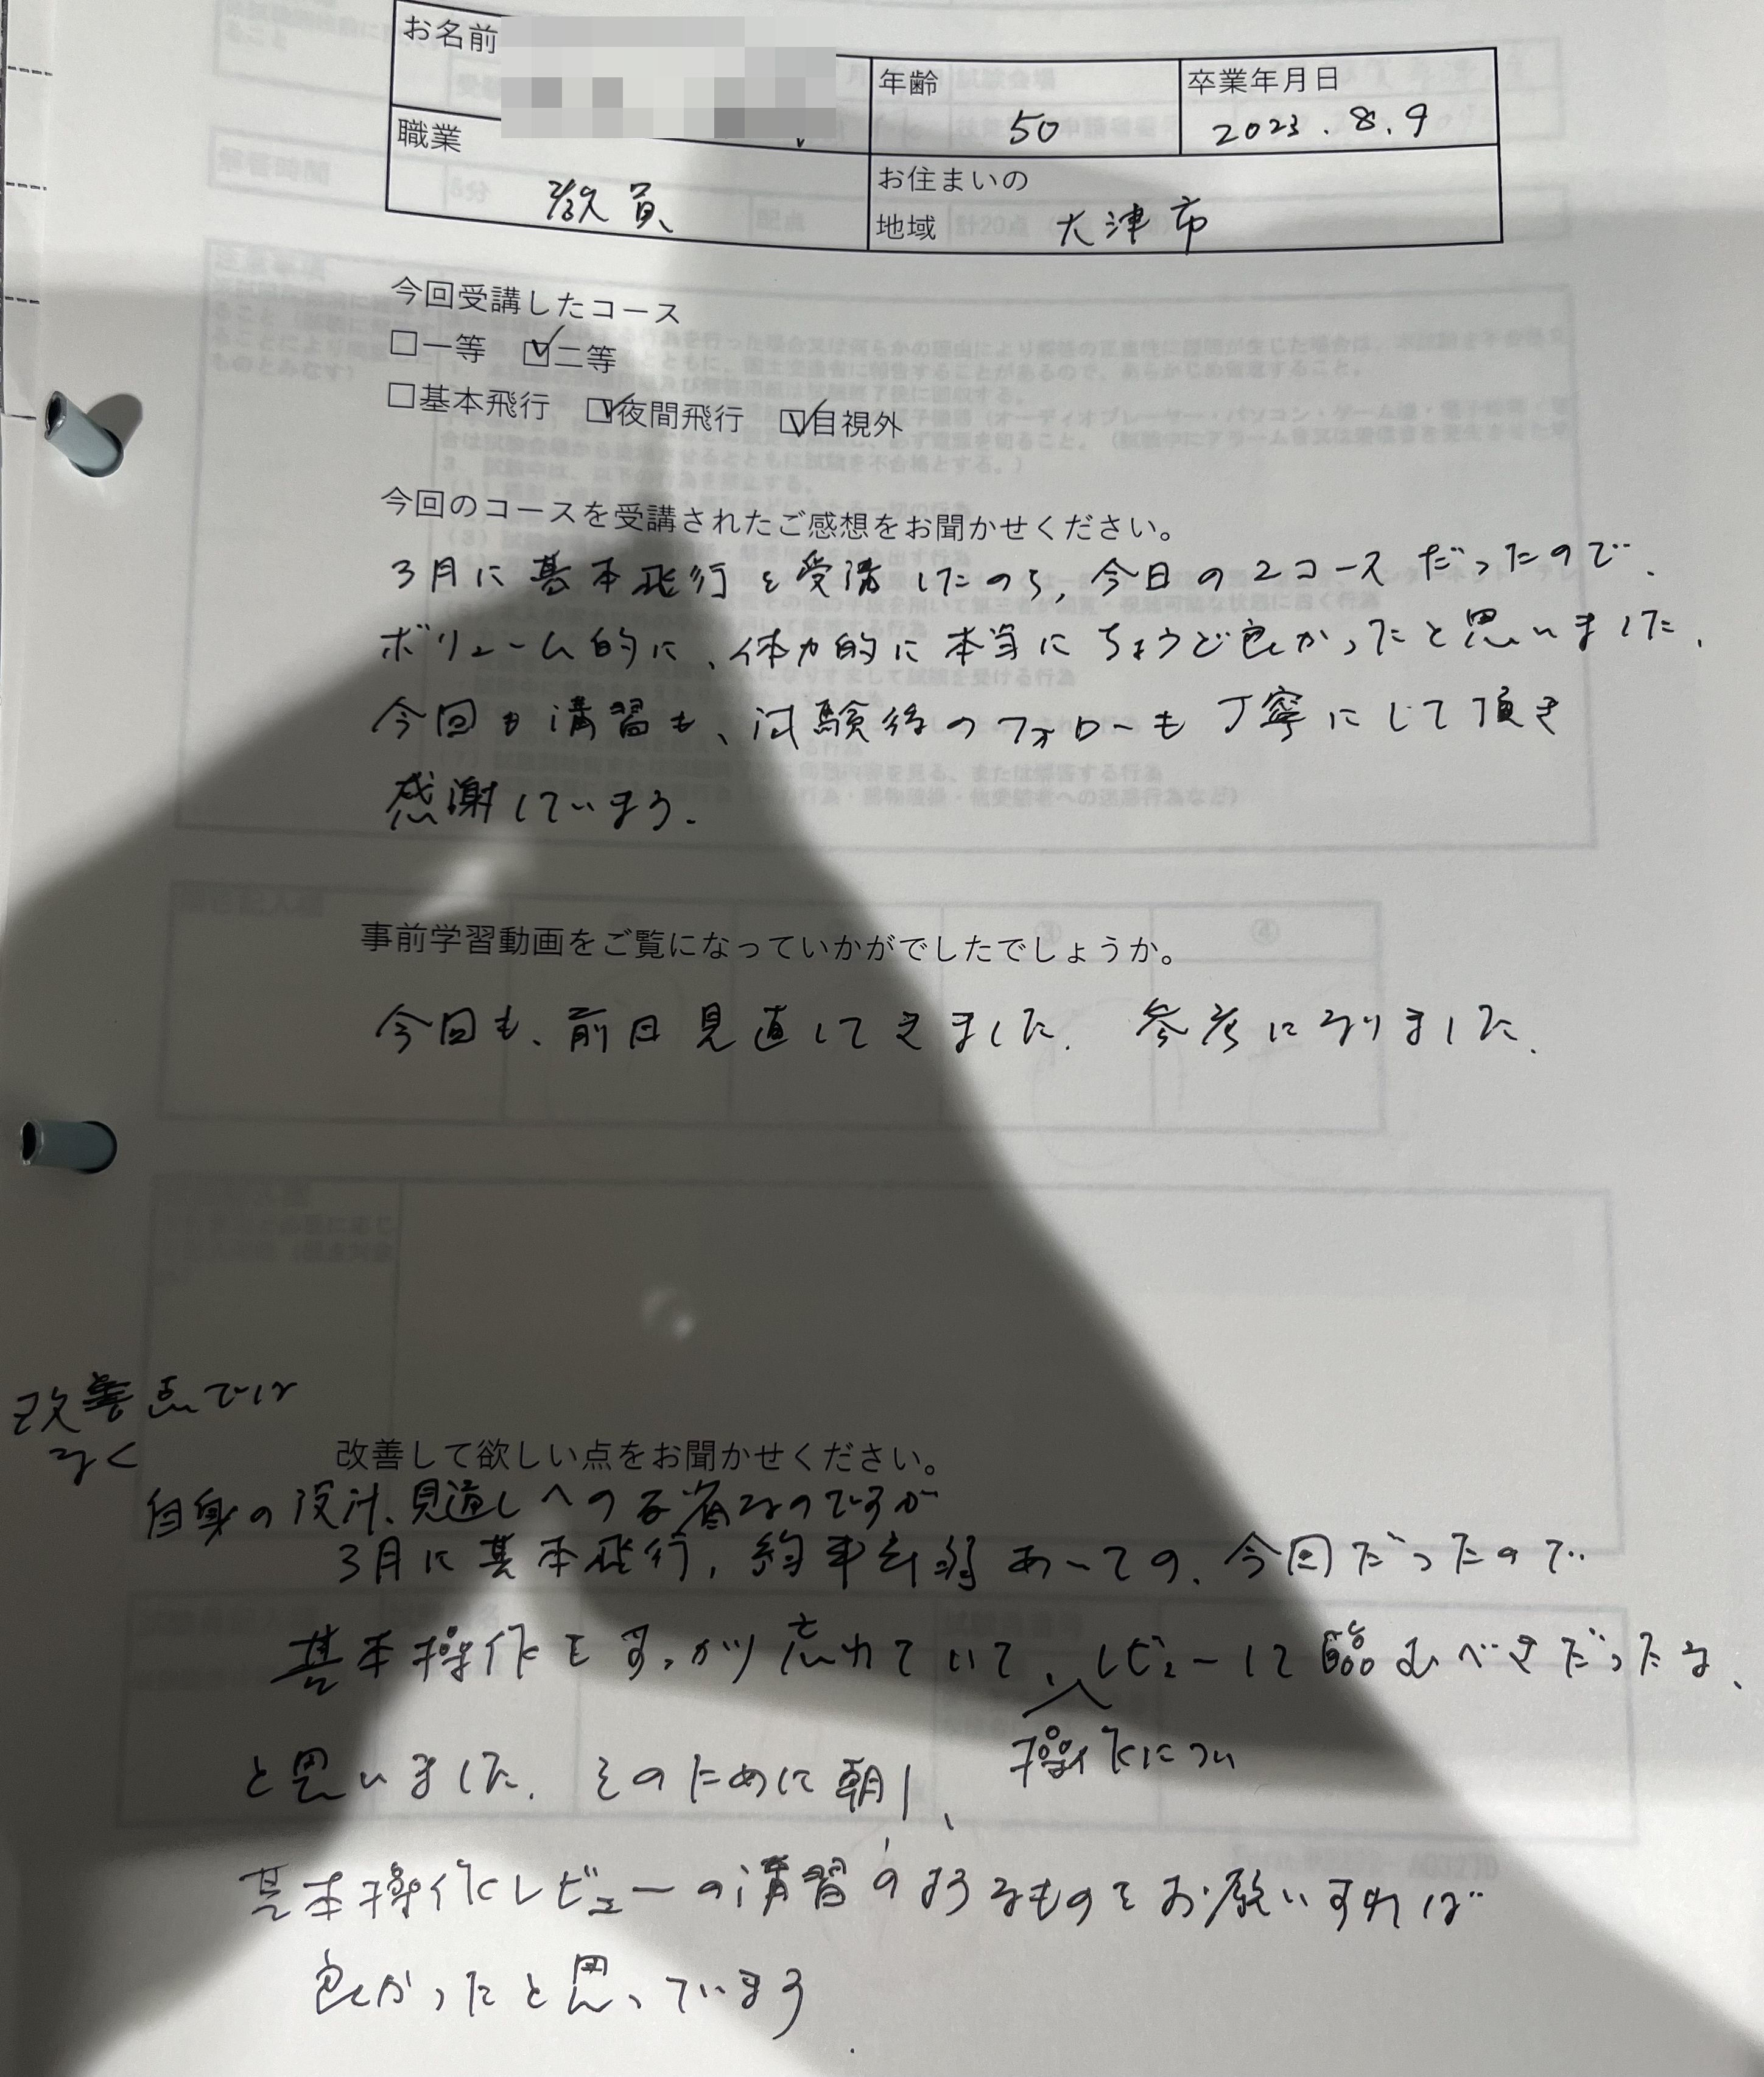 お名前
年齢
50
卒業年月日
2023.8.9
職業
教員
お住まいの
地域
大津市
今回受講したコース
□一等 ☑二等
□基本飛行 ☑夜間飛行 ☑目視外
今回のコースを受講されたご感想をお聞かせください。
3月に基本飛行を受講したのち、今日の2コースだったので、
ボリューム的に、体力的に本当にちょうど良かったと思いました。
今回も講習も、試験後のフォローも丁寧にして頂き
感謝しています。
事前学習動画をご覧になっていかがでしたでしょうか。
今回も、前日見直してきました。参考になりました。
改善点では
なく
改善して欲しい点をお聞かせください。
自身の設計、見通しへの反省なのですが
3月に基本飛行、約半年弱あいての、今回だったので
基本操作をすっかり忘れていて、レビューして臨むべきだったな、
操作につい
と思いました。そのために朝1、
基本操作レビューの講習のようなものをお願いすれば
良かったと思っています.